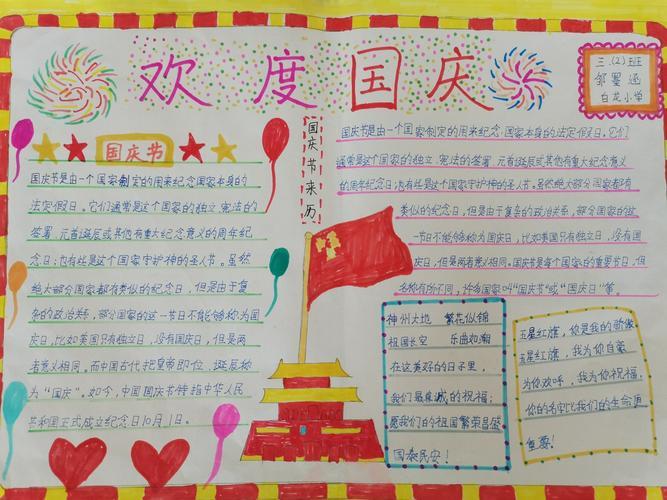 欢度国庆
三.(2)班
邹墨涵
白龙小学
国庆节
国庆节是由一个国家制定的用来纪念国家本身的
法定假日。它们通常是这个国家的独立、宪法的
签署、元首诞辰或其他有重大纪念意义的周年纪
念日;也有些是这个国家守护神的圣人节。虽然
绝大部分国家都有类似的纪念日,但是由于复
杂的政治关系,部分国家的这一节日不能够称为国
庆日,比如美国只有独立日,没有国庆日,但是两
者意义相同。而中国古代把皇帝即位、诞辰称
为“国庆”。如今,中国国庆节特指中华人民
共和国正式成立纪念日10月1日。
国庆节来历
国庆节是由一个国家制定的用来纪念国家本身的法定假日。它们
通常是这个国家的独立、宪法的签署、元首诞辰或其他有重大纪念意义
的周年纪念日;也有些是这个国家守护神的圣人节。虽然绝大部分国家都有
类似的纪念日,但是由于复杂的政治关系,部分国家的这
一节日不能够称为国庆日,比如美国只有独立日,没有国
庆日,但是两者意义相同。国庆节是每个国家的重要节日,但
名称有所不同,许多国家叫“国庆节”或“国庆日”等。
神州大地 繁花似锦
祖国长空 乐曲如潮
在这美好的日子里,
我们最真诚的祝福:
愿我们的祖国繁荣昌盛
国泰民安!
五星红旗,你是我的骄傲
五星红旗,我为你自豪
为你欢呼,我为你祝福,
你的名字比我们的生命更
重要!